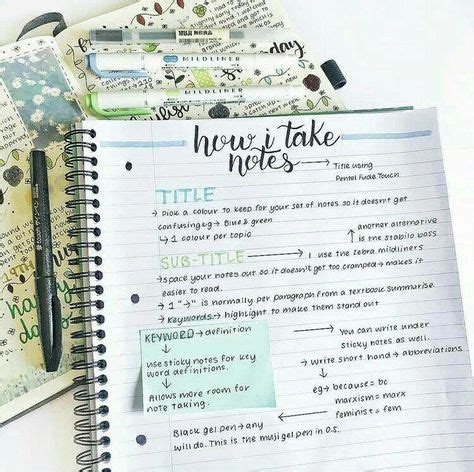 MUJI
MILDLINER
MILDLINER
day
how i take
notes → Title using
Pentel Fude Touch
TITLE
→ Pick a colour to keep for your set of notes so it doesn't get
confusing eg → Blue & green
↳ 1 colour per topic
another alternative
is the stabilo boss
SUB-TITLE → I use the zebra mildliners
→ space your notes out so it doesn't get too cramped → makes it
easier to read.
→ 1 "→" is normally per paragraph from a textbook summurise.
→ Keywords → highlight to make them stand out
KEYWORD → definition
↓
use sticky notes for key
word definitions.
↓
Allows more room for
note taking.
→ You can write under
sticky notes as well.
→ write short hand → abbreviations
eg → because = bc
marxism = marx
feminist = fem
Black gel pen → any
will do. This is the muji gel pen in 0.5.